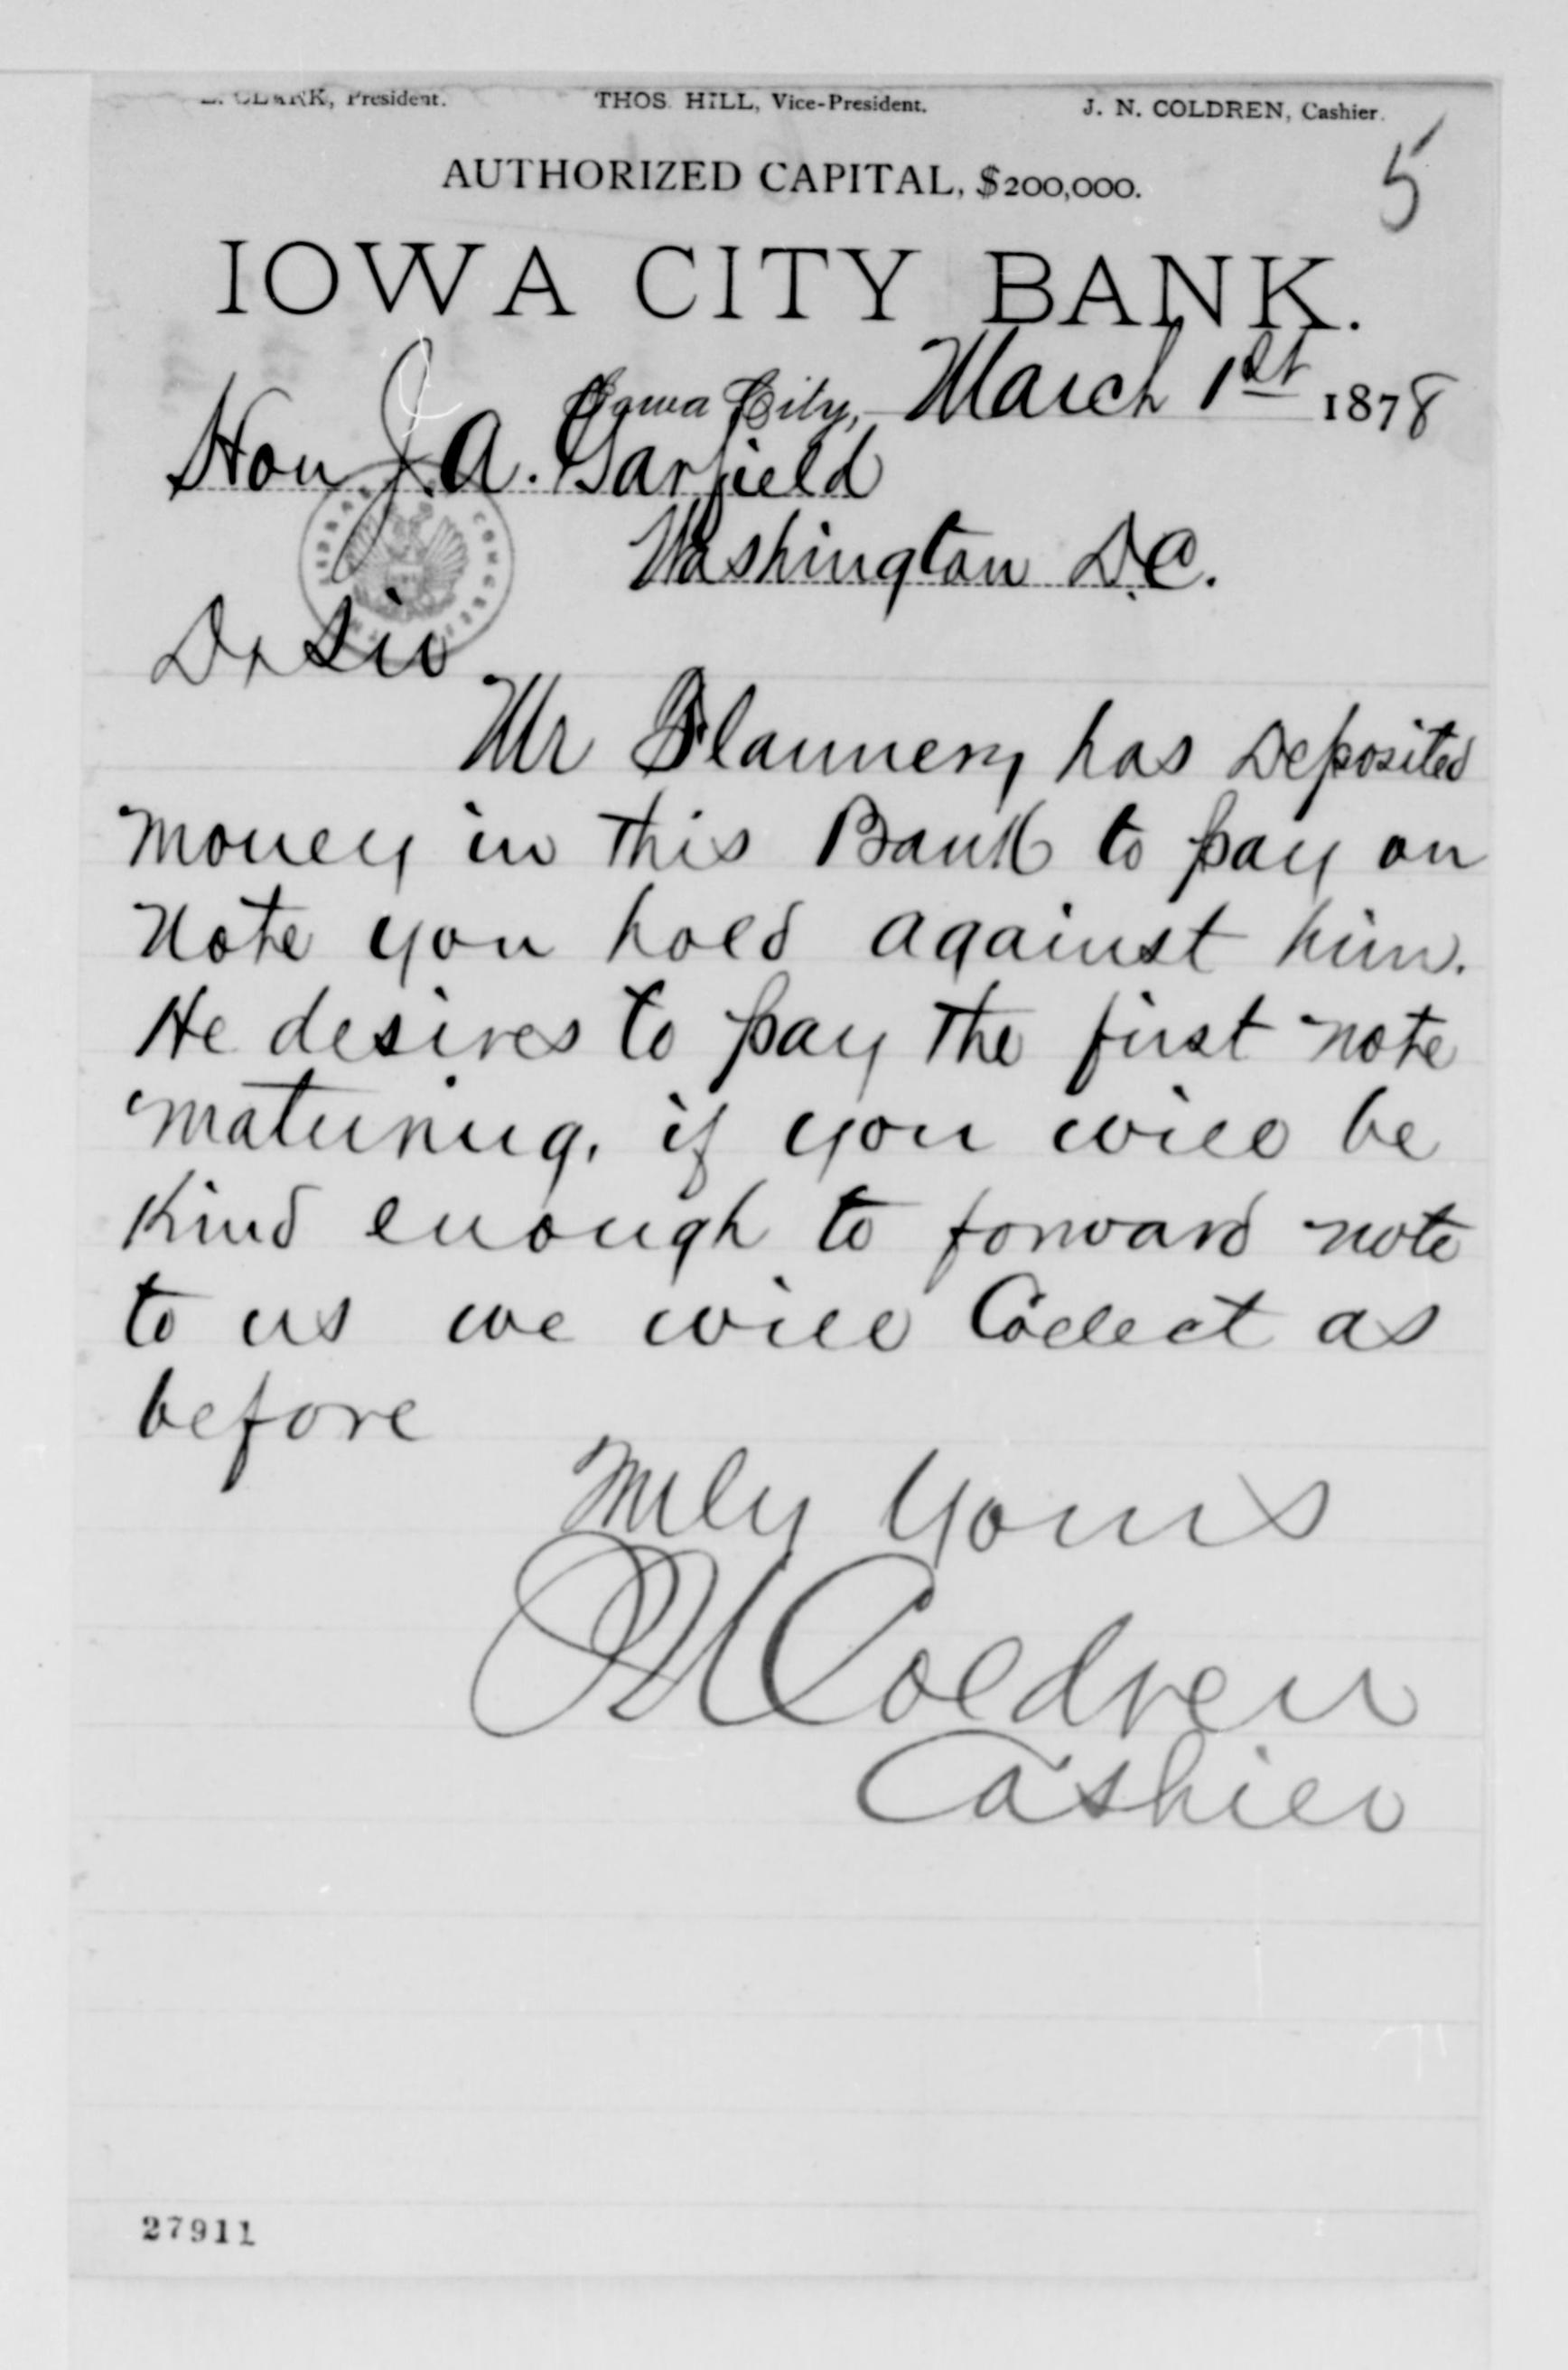 CLARK, President. THOS. HILL, Vice-President. J. N. COLDREN, Cashier.
5
AUTHORIZED CAPITAL, $200,000.
IOWA CITY BANK.
Iowa City, March 1st 1878
Hon J. A. Garfield
Washington D.C.
Dr Sir
Mr Flannery has Deposited
money in this Bank to pay on
Note you hold against him.
He desires to pay the first note
maturing. if you will be
Kind enough to forward note
to us we will Collect as
before
Truly Yours
JNColdren
Cashier
27911